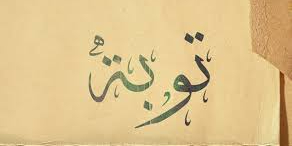 توبة